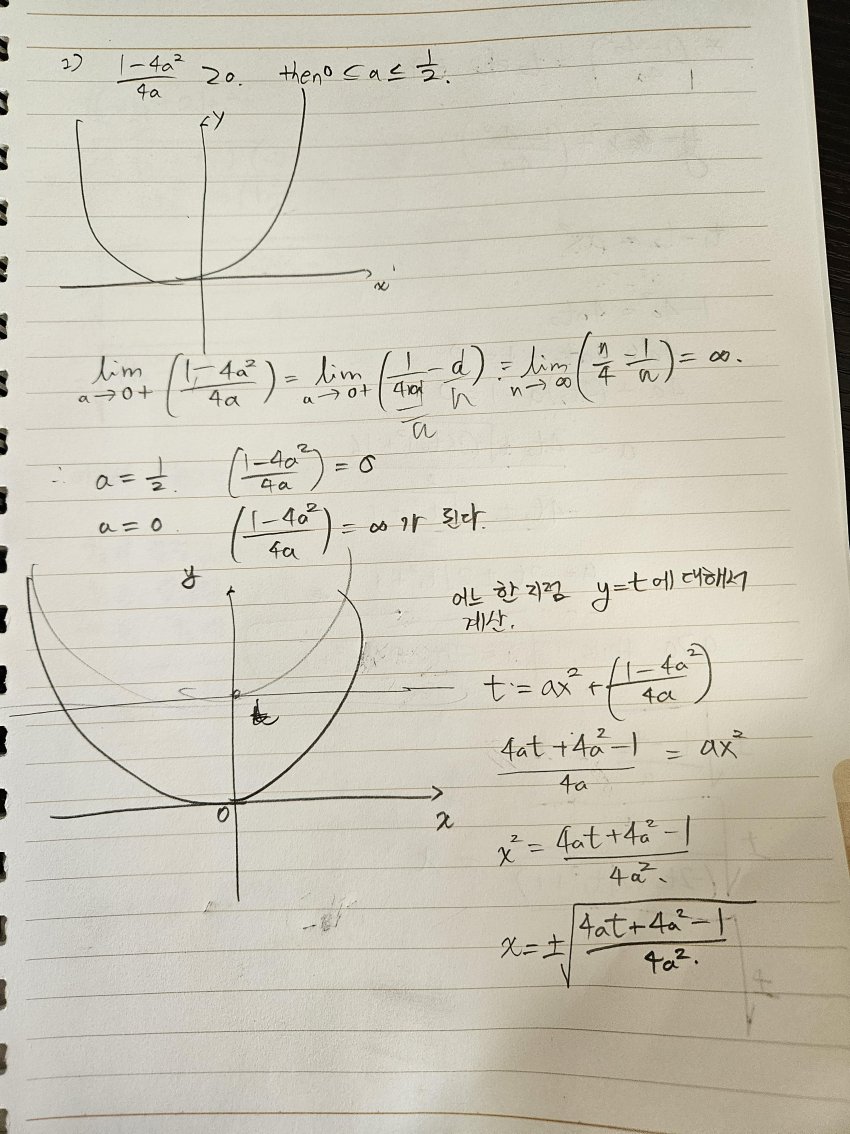 2) (1-4a²)/4a ≥0. then 0 ≤ a ≤ 1/2.
y
x
lim a→0+ ((1-4a²)/4a) = lim a→0+ (1/4a - a) = lim n→∞ (n/4 - 1/n) = ∞.
∴ a = 1/2. ((1-4a²)/4a) = 0
a = 0 ((1-4a²)/4a) = ∞ 가 된다.
y
어느 한 지점 y=t 에 대해서
계산.
t = ax² + ((1-4a²)/4a)
t
(4at+4a²-1)/4a = ax²
0
x
x² = (4at+4a²-1)/4a².
x = ±√((4at+4a²-1)/4a².)